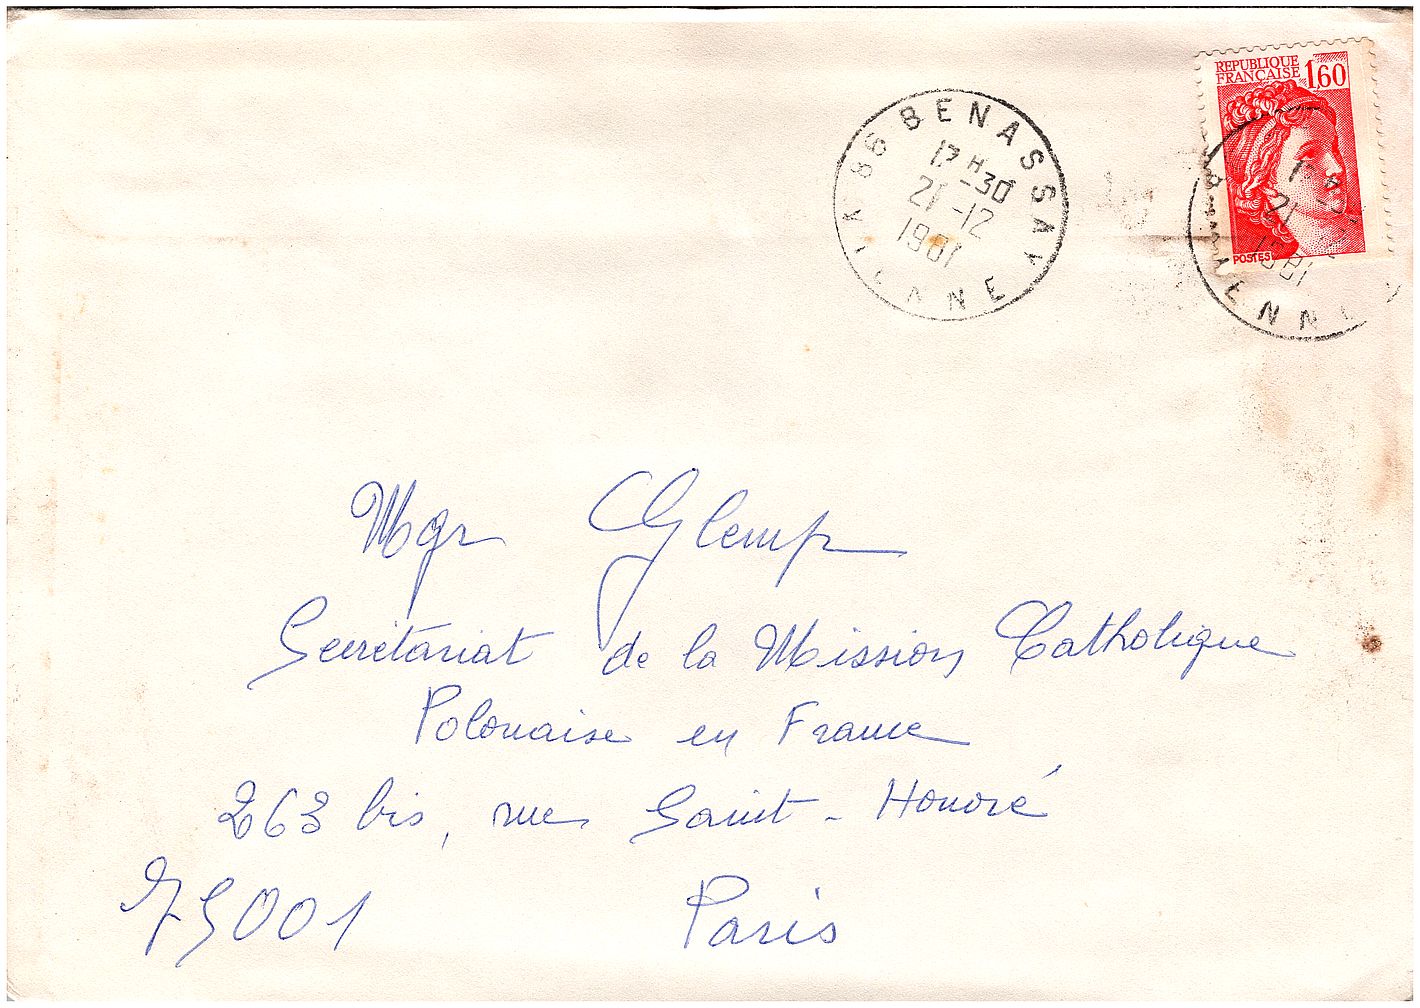 REPUBLIQUE
FRANÇAISE 1,60
POSTES
86 BENASSAY
17 H 30
21-12
1981
VIENNE
21
1981
ENN
Mgr Glemp
Secrétariat de la Mission Catholique
Polonaise en France
263 bis, rue Saint-Honoré
75001 Paris